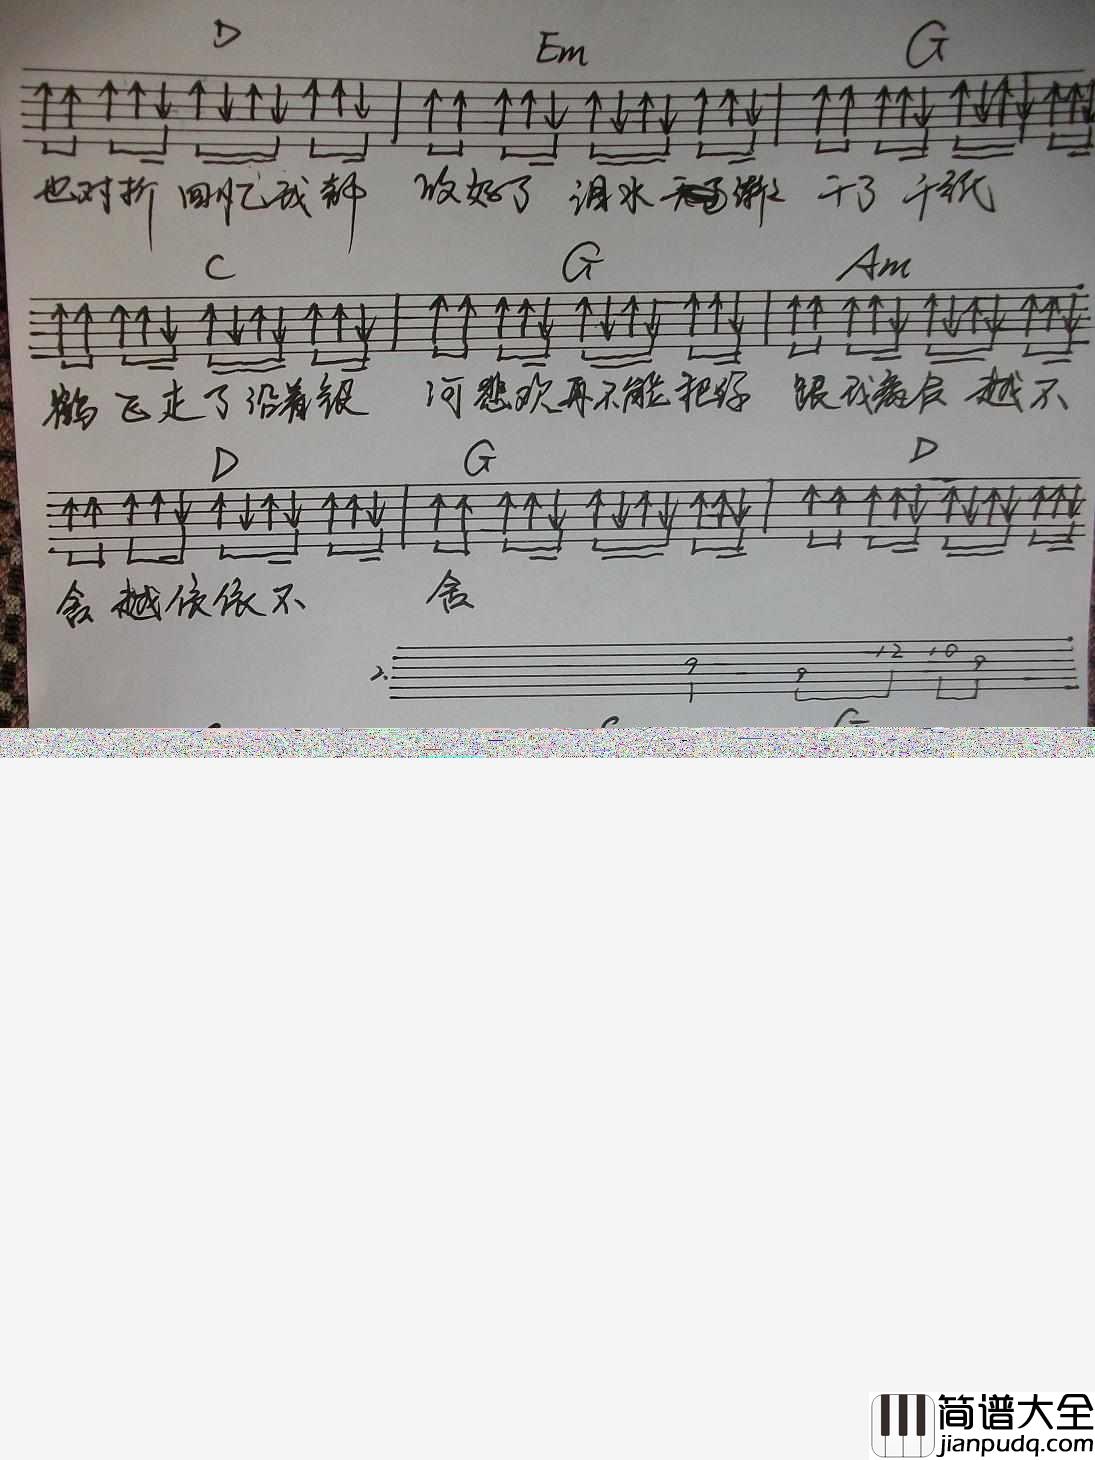 D Em G
也对折 回忆我都 收好了 泪水 渐渐 干了 千纸
C G Am
鹤飞走了沿着银 河悲欢再不能把你 跟我离合 越不
D G D
舍 越依依不 舍
2. 9 9 12 10 9
G
简谱大全
jianpudq.com